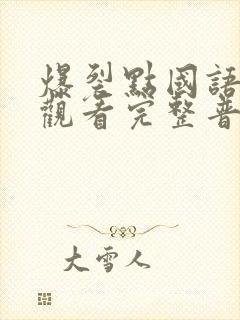 爆裂點國語
觀看完整普
大雪人